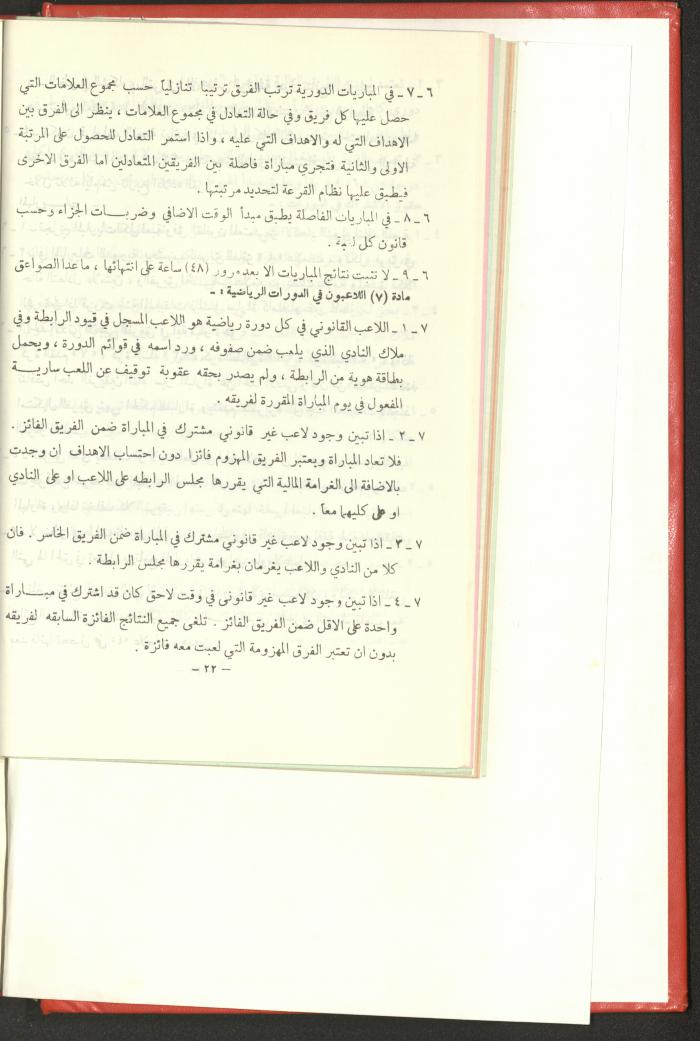 ٦ ـ ٧ ـ في المباريات الدورية ترتب الفرق ترتيبا تنازلياً حسب مجموع العلامات التي
حصل عليها كل فريق وفي حالة التعادل في مجموع العلامات ، ينظر الى الفرق بين
الاهداف التي له والاهداف التي عليه ، واذا استمر التعادل للحصول على المرتبة
الاولى والثانية فتجري مباراة فاصلة بين الفريقين المتعادلين اما الفرق الاخرى
فيطبق عليها نظام القرعة لتحديد مرتبتها .
٦ ـ ٨ ـ في المباريات الفاصلة يطبق مبدأ الوقت الاضافي وضربات الجزاء وحسب
قانون كل لعبة .
٦ ـ ٩ ـ لا تثبت نتائج المباريات الا بعد مرور (٤٨) ساعة على انتهائها ، ما عدا الصواعق
مادة (٧) اللاعبون في الدورات الرياضية : ـ
٧ ـ ١ ـ اللاعب القانوني في كل دورة رياضية هو اللاعب المسجل في قيود الرابطة وفي
ملاك النادي الذي يلعب ضمن صفوفه ، ورد اسمه في قوائم الدورة ، ويحمل
بطاقة هوية من الرابطة ، ولم يصدر بحقه عقوبة توقيف عن اللعب سارية
المفعول في يوم المباراة المقررة لفريقه .
٧ ـ ٢ ـ اذا تبين وجود لاعب غير قانوني مشترك في المباراة ضمن الفريق الفائز .
فلا تعاد المباراة ويعتبر الفريق المهزوم فائزا دون احتساب الاهداف ان وجدت
بالاضافة الى الغرامة المالية التي يقررها مجلس الرابطه على اللاعب او على النادي
او على كليهما معاً .
٧ ـ ٣ ـ اذا تبين وجود لاعب غير قانوني مشترك في المباراة ضمن الفريق الخاسر . فان
كلا من النادي واللاعب يغرمان بغرامة يقررها مجلس الرابطة .
٧ ـ ٤ ـ اذا تبين وجود لاعب غير قانونى في وقت لاحق كان قد اشترك في مباراة
واحدة على الاقل ضمن الفريق الفائز . تلغى جميع النتائج الفائزة السابقه لفريقه
بدون ان تعتبر الفرق المهزومة التي لعبت معه فائزة .
— ٢٢ —